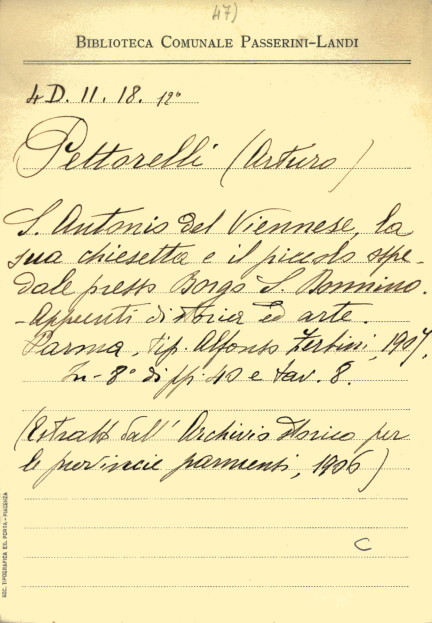 47)
BIBLIOTECA COMUNALE PASSERINI-LANDI
4 D. II. 18. 12°
Pettorelli (Arturo)
S. Antonio del Viennese, la
sua chiesetta e il piccolo ospe-
dale presso Borgo S. Donnino.
- Appunti di storia ed arte.
Parma, tip. Alfonso Zerbini, 1907,
In-8° di pp. 40 e tav. 8.
(Estratto dall' Archivio storico per
le provincie parmensi, 1906)
C
SOC. TIPOGRAFICA ED. PORTA - PIACENZA